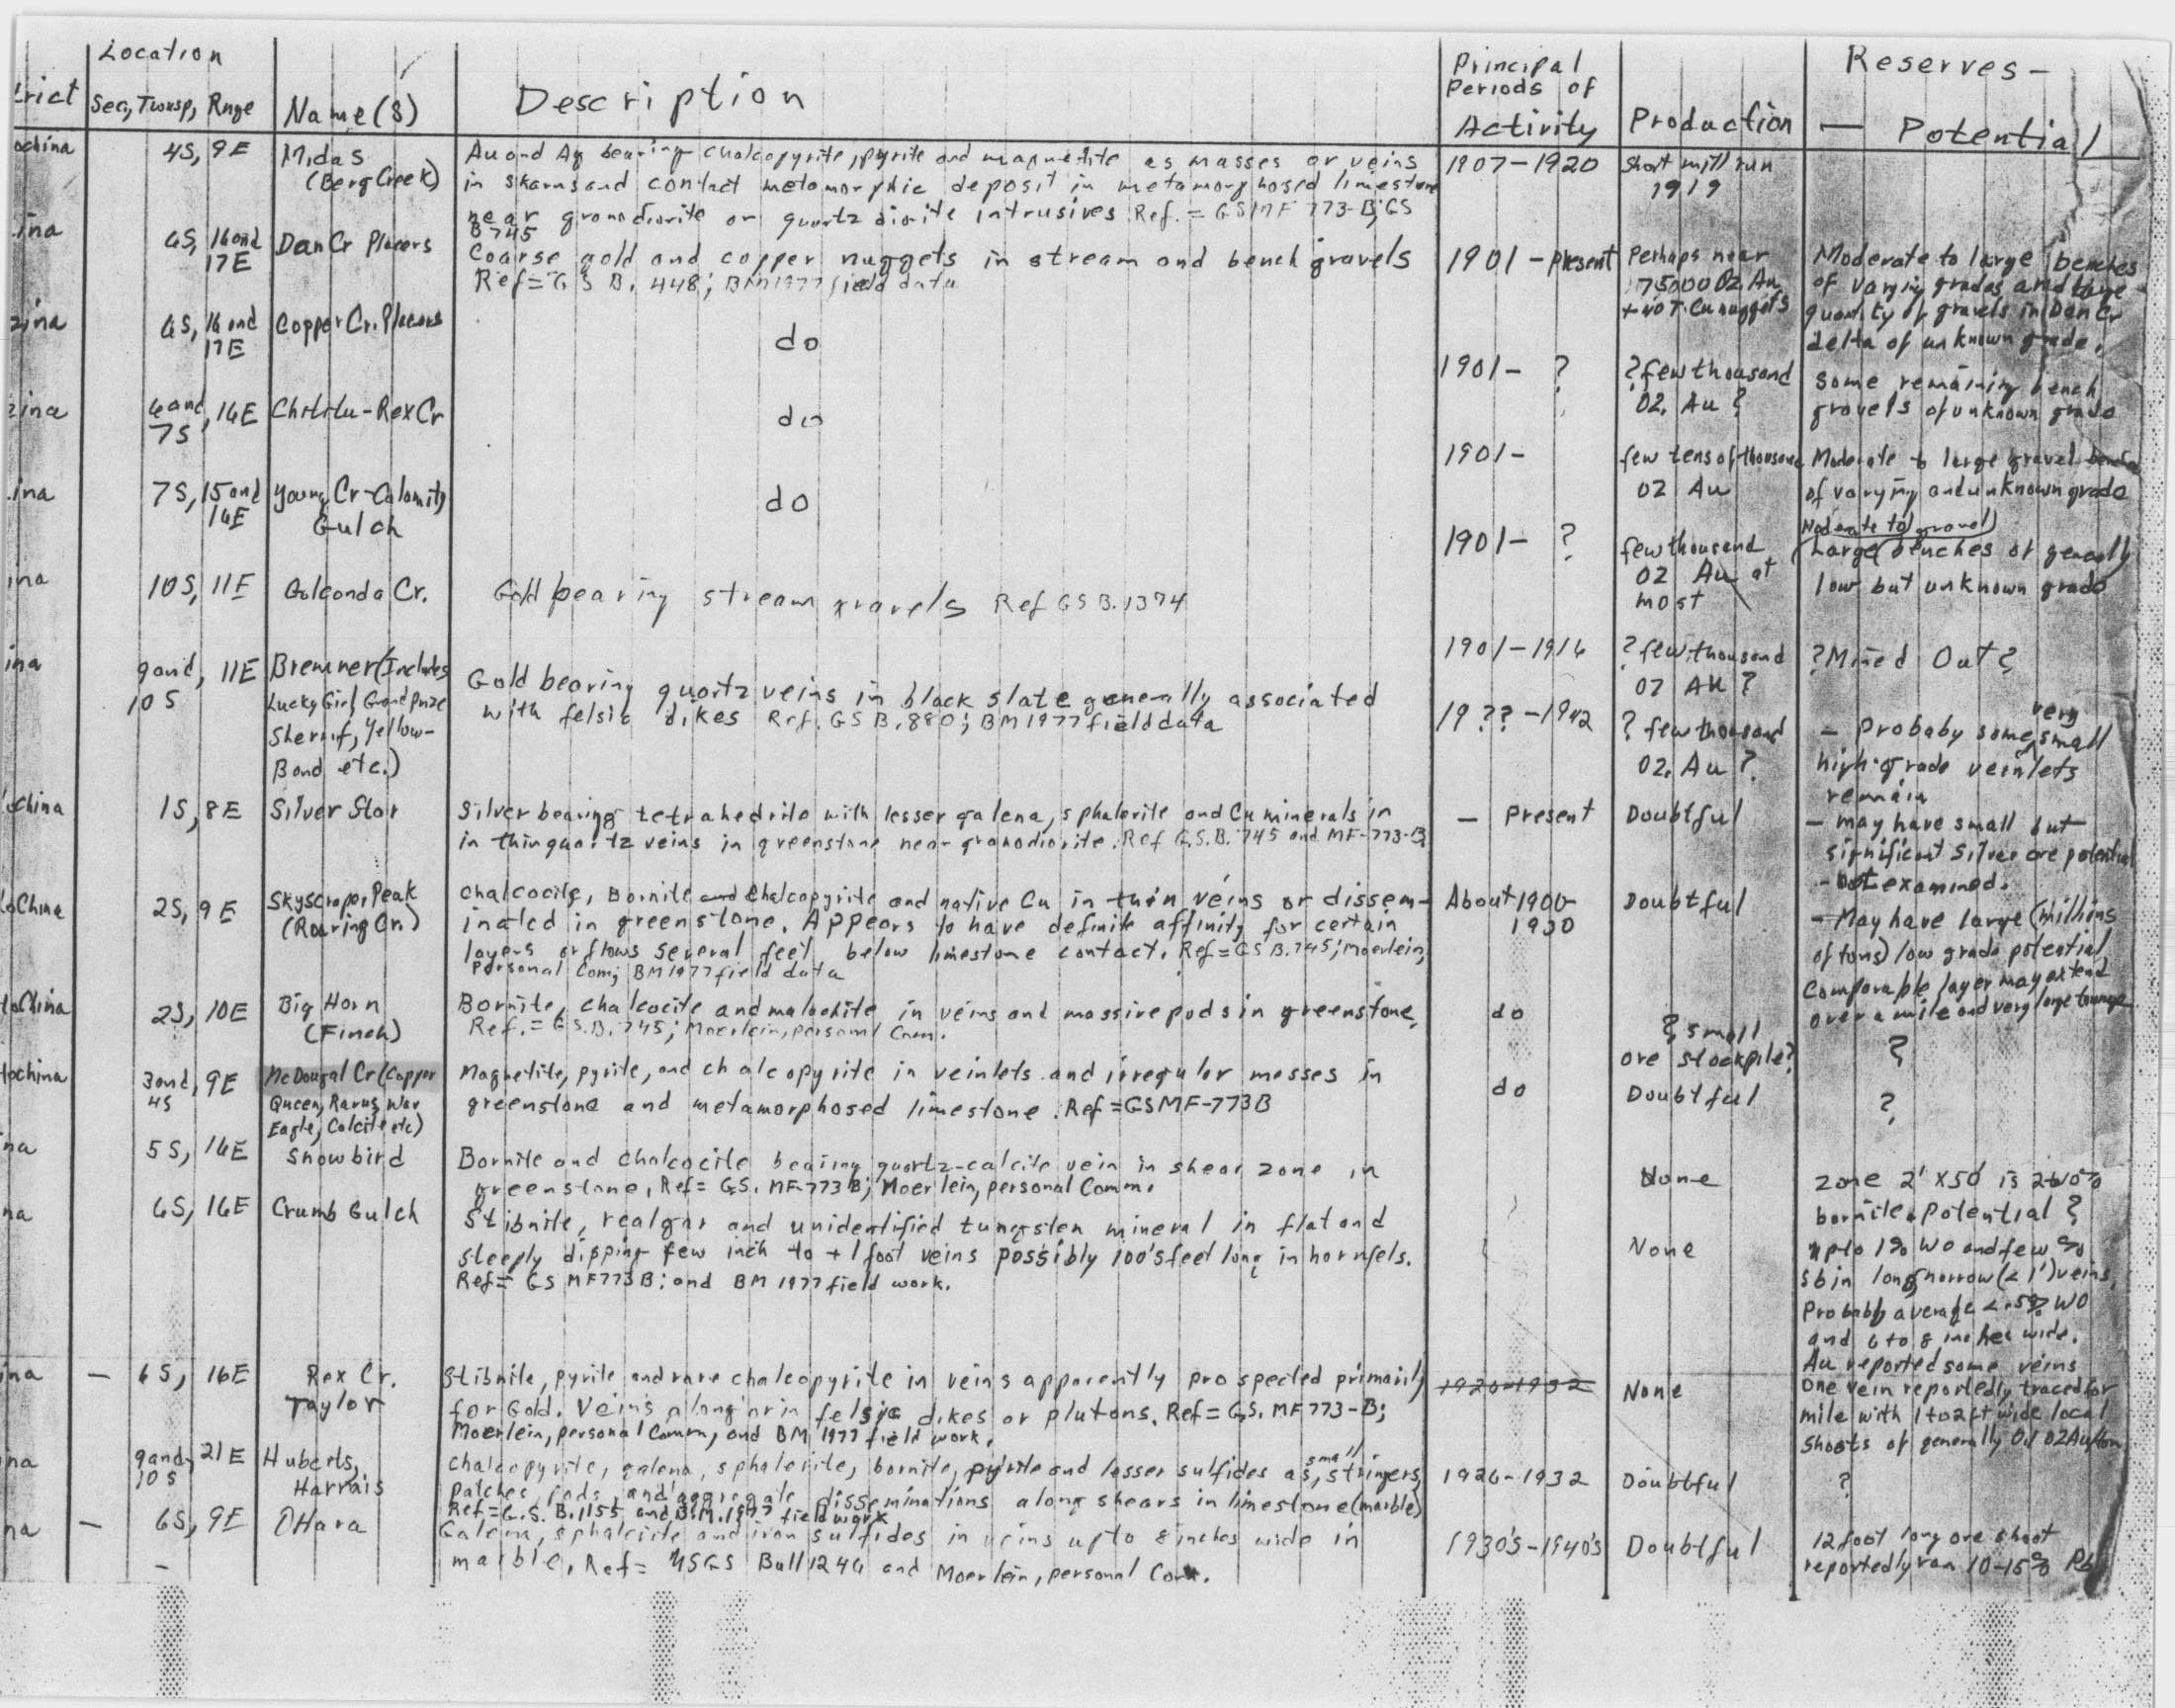 Location
Principal
Reserves –
trict
Sec, Twnsp, Rnge
Name(s)
Description
Periods of
Activity
Production
— Potential
ochina
4S, 9E
Midas
(Berg Creek)
Au and Ag bearing chalcopyrite, pyrite and magnetite as masses or veins
in skarns and contact metamorphic deposit in metamorphosed limestone
near granodiorite or quartz diorite intrusives Ref. = GSMF 773-B; GS
B745
1907–1920
Short mill run
1919
ina
6S, 16 and
17E
Dan Cr Placers
Coarse gold and copper nuggets in stream and bench gravels
Ref = G S B. 448; BM 1977 field data
1901 – present
Perhaps near
175000 OZ Au
Moderate to large benches
of varying grades and large
quantity of gravels in Dan Cr
delta of unknown grade.
zina
6S, 16 and
17E
Copper Cr. Placers
do
1901 – ?
? few thousand
OZ. Au ?
some remaining bench
gravels of unknown grade
zina
6 and
7S, 16E
Chititu – Rex Cr
do
1901 –
few tens of thousand
OZ Au
Moderate to large gravel benches
of varying and unknown grade
ina
7S, 15 and
16E
Young Cr – Calamity
Gulch
do
1901 – ?
few thousand
OZ Au at
most
Moderate to gravel
Large benches of generally
low but unknown grade
ina
10S, 11E
Golconda Cr.
Gold bearing stream gravels Ref GSB. 1374
1901–1916
? few thousand
OZ Au ?
? Mined Out ?
ina
9 and
10S, 11E
Bremner (Includes
Lucky Girl, Grand Prize
Sherrif, Yellow-
Bond etc.)
Gold bearing quartz veins in black slate generally associated
with felsic dikes Ref. GSB. 880; BM 1977 field data
19?? – 1942
? few thousand
OZ. Au ?
very
– Probaby some small
high-grade veinlets
remain
lochina
1S, 8E
Silver Star
Silver bearing tetrahedrite with lesser galena, sphalerite and Cu minerals in
in thin quartz veins in greenstone near granodiorite. Ref G.S.B. 745 and MF-773-B
– Present
Doubtful
– may have small but
significant silver ore potential
– Not examined.
toChina
2S, 9E
Skyscraper Peak
(Roaring Cr.)
Chalcocite, Bornite and Chalcopyrite and native Cu in thin veins or dissem-
inated in greenstone. Appears to have definite affinity for certain
layers or flows several feet below limestone contact. Ref = GS B. 745; Moerlein,
personal Com; BM 1977 field data
About 1900–
1930
Doubtful
– May have large (millions
of tons) low grade potential
Comparable layer may extend
over a mile and very large tonnage
toChina
2S, 10E
Big Horn
(Finch)
Bornite, chalcocite and malachite in veins and massive pods in greenstone,
Ref. = G.S.B. 745; Moerlein, personal Comm.
do
? small
ore stockpile?
?
tochina
3 and
4S, 9E
McDougal Cr (Copper
Queen, Rarus, War
Eagle, Calcite etc)
Magnetite, pyrite, and chalcopyrite in veinlets and irregular masses in
greenstone and metamorphosed limestone. Ref = GSMF-773B
do
Doubtful
?
na
5S, 16E
Snowbird
Bornite and Chalcocite bearing quartz-calcite vein in shear zone in
greenstone. Ref = G.S. MF-773 B; Moerlein, personal Comm.
None
zone 2' x 50' is
bornite. Potential ?
na
6S, 16E
Crumb Gulch
Stibnite, realgar and unidentified tungsten mineral in flat and
steeply dipping few inch to +1 foot veins possibly 100's feet long in hornfels.
Ref = GS MF773B; and BM 1977 field work.
None
up to 1% WO and few %
Sb in long narrow (<1') veins,
Probably average <.5% WO
and 6 to 8 inches wide.
Au reported some veins
ina
– 6S, 16E
Rex Cr.
Taylor
Stibnite, pyrite and rare chalcopyrite in veins apparently prospected primarily
for Gold. Veins along or in felsic dikes or plutons. Ref = G.S. MF773-B;
Moerlein, personal Comm, and BM 1977 field work.
1926–1932
None
One vein reportedly traced for
mile with 1 to 2 ft wide local
shoots of generally 0.1 OZ Au/ton
na
9 and
10S, 21E
Huberts,
Harrais
small
Chalcopyrite, galena, sphalerite, bornite, pyrite and lesser sulfides as, stringers,
patches, pods, and aggregate disseminations along shears in limestone (marble)
Ref = G.S. B. 1155 and B.M. 1977 field work
1926–1932
Doubtful
?
na
– 6S, 9E
OHara
Galena, sphalerite and iron sulfides in veins up to 8 inches wide in
marble. Ref = USGS Bull 1246 and Moerlein, personal Com.
1930's–1940's
Doubtful
12 foot long ore shoot
reportedly ran 10–15% Pb